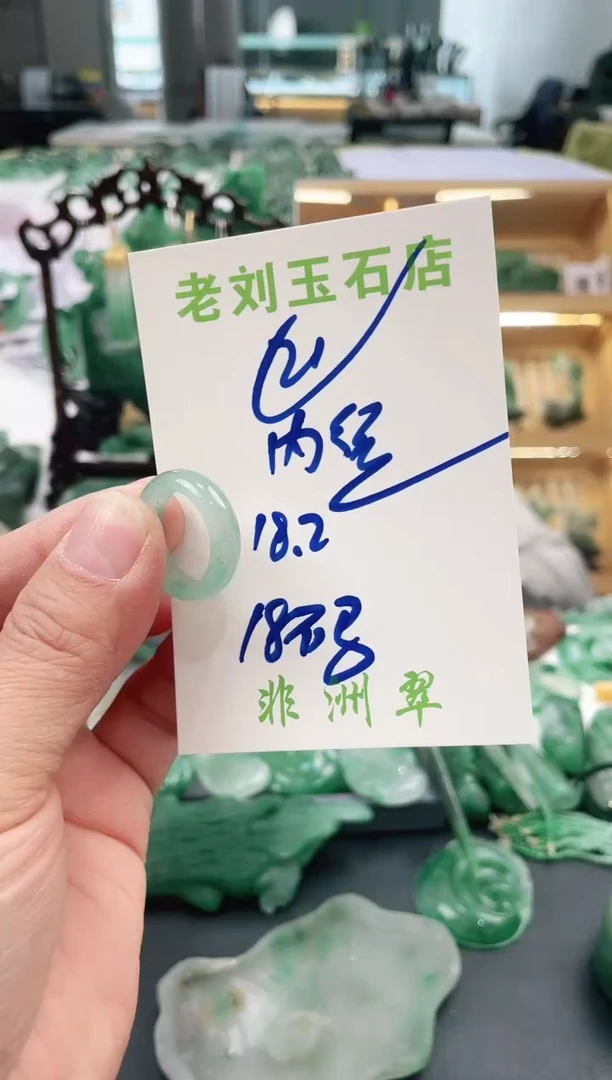 老刘玉石店
内径
18.2
18号
非洲翠